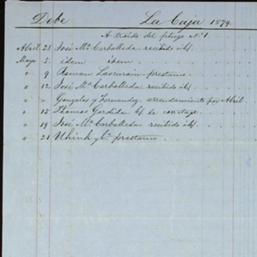 Debe La Caja 1874.
A Saldo del folio Nº 1
Abril 28 José Mª Carballeda recibido
Mayo 5 idem idem
" 9 Roman prestamo
" 12 José Mª Carballeda recibido
" " Gonzales y Fernandez, arrendamiento por Abril
" 15 Thomas Gardida de corretage
" 19 José Mª Carballeda recibido
" 21 Uhink y Cª prestamo